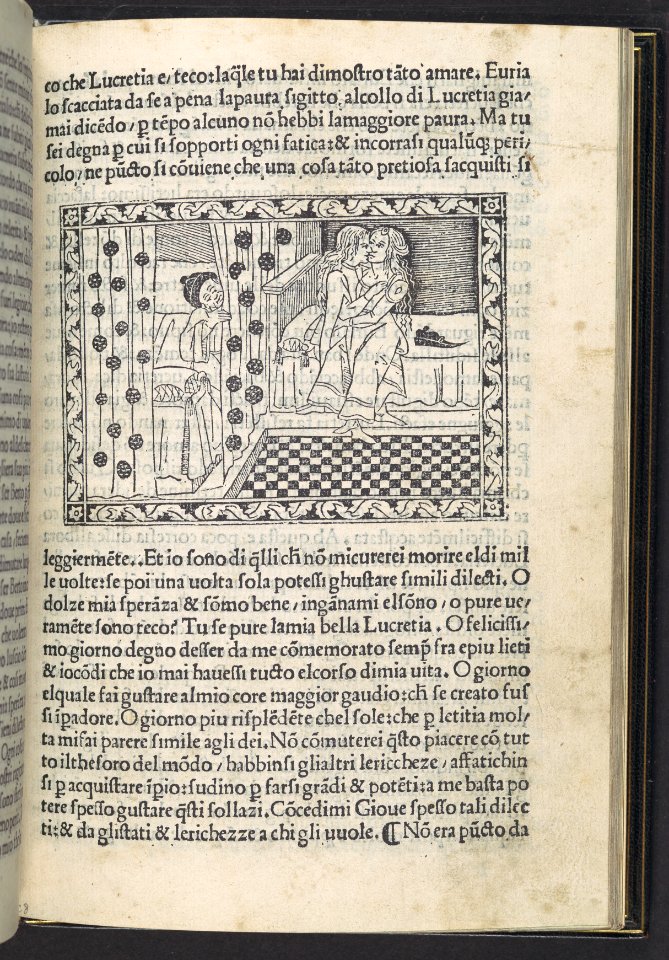 co che Lucretia e, teco: laq̃le tu hai dimostro tãto amare. Euria
lo scacciata da se a pena lapaura sigitto alcollo di Lucretia gia/
mai dicẽdo / ꝑ tẽpo alcuno nõ hebbi lamaggiore paura. Ma tu
sei degna ꝑ cui si sopporti ogni fatica: & incorrasi qualũq; peri/
colo / ne pũcto si cõuiene che una cosa tãto pretiosa sacquisti si
leggiermẽte.. Et io sono di q̃lli ch̃ nõ micurerei morire eldi mil
le uolte: se poi una uolta sola potessi ghustare simili dilecti. O
dolze mia sperãza & sõmo bene / ingãnami elsõno / o pure ue/
ramẽte sono teco? Tu se pure lamia bella Lucretia. O felicissi/
mo giorno degno desser da me cõmemorato semꝑ fra epiu lieti
& iocõdi che io mai hauessi tucto elcorso dimia uita. O giorno
elquale fai gustare almio core maggior gaudio: ch̃ se creato fus
si ĩpadore. O giorno piu risplẽdẽte chel sole: che ꝑ letitia mol/
ta mifai parere simile agli dei. Nõ cõmuterei q̃sto piacere cõ tut
to ilthesoro del mõdo / habbinsi glialtri lericcheze / affatichin
si ꝑ acquistare ĩpio: sudino ꝑ farsi grãdi & potẽti: a me basta po
tere spesso gustare q̃sti sollazi. Cõcedimi Gioue spesso tali dilec
ti: & da glistati & lerichezze a chi gli uuole. ¶ Nõ era pũcto da